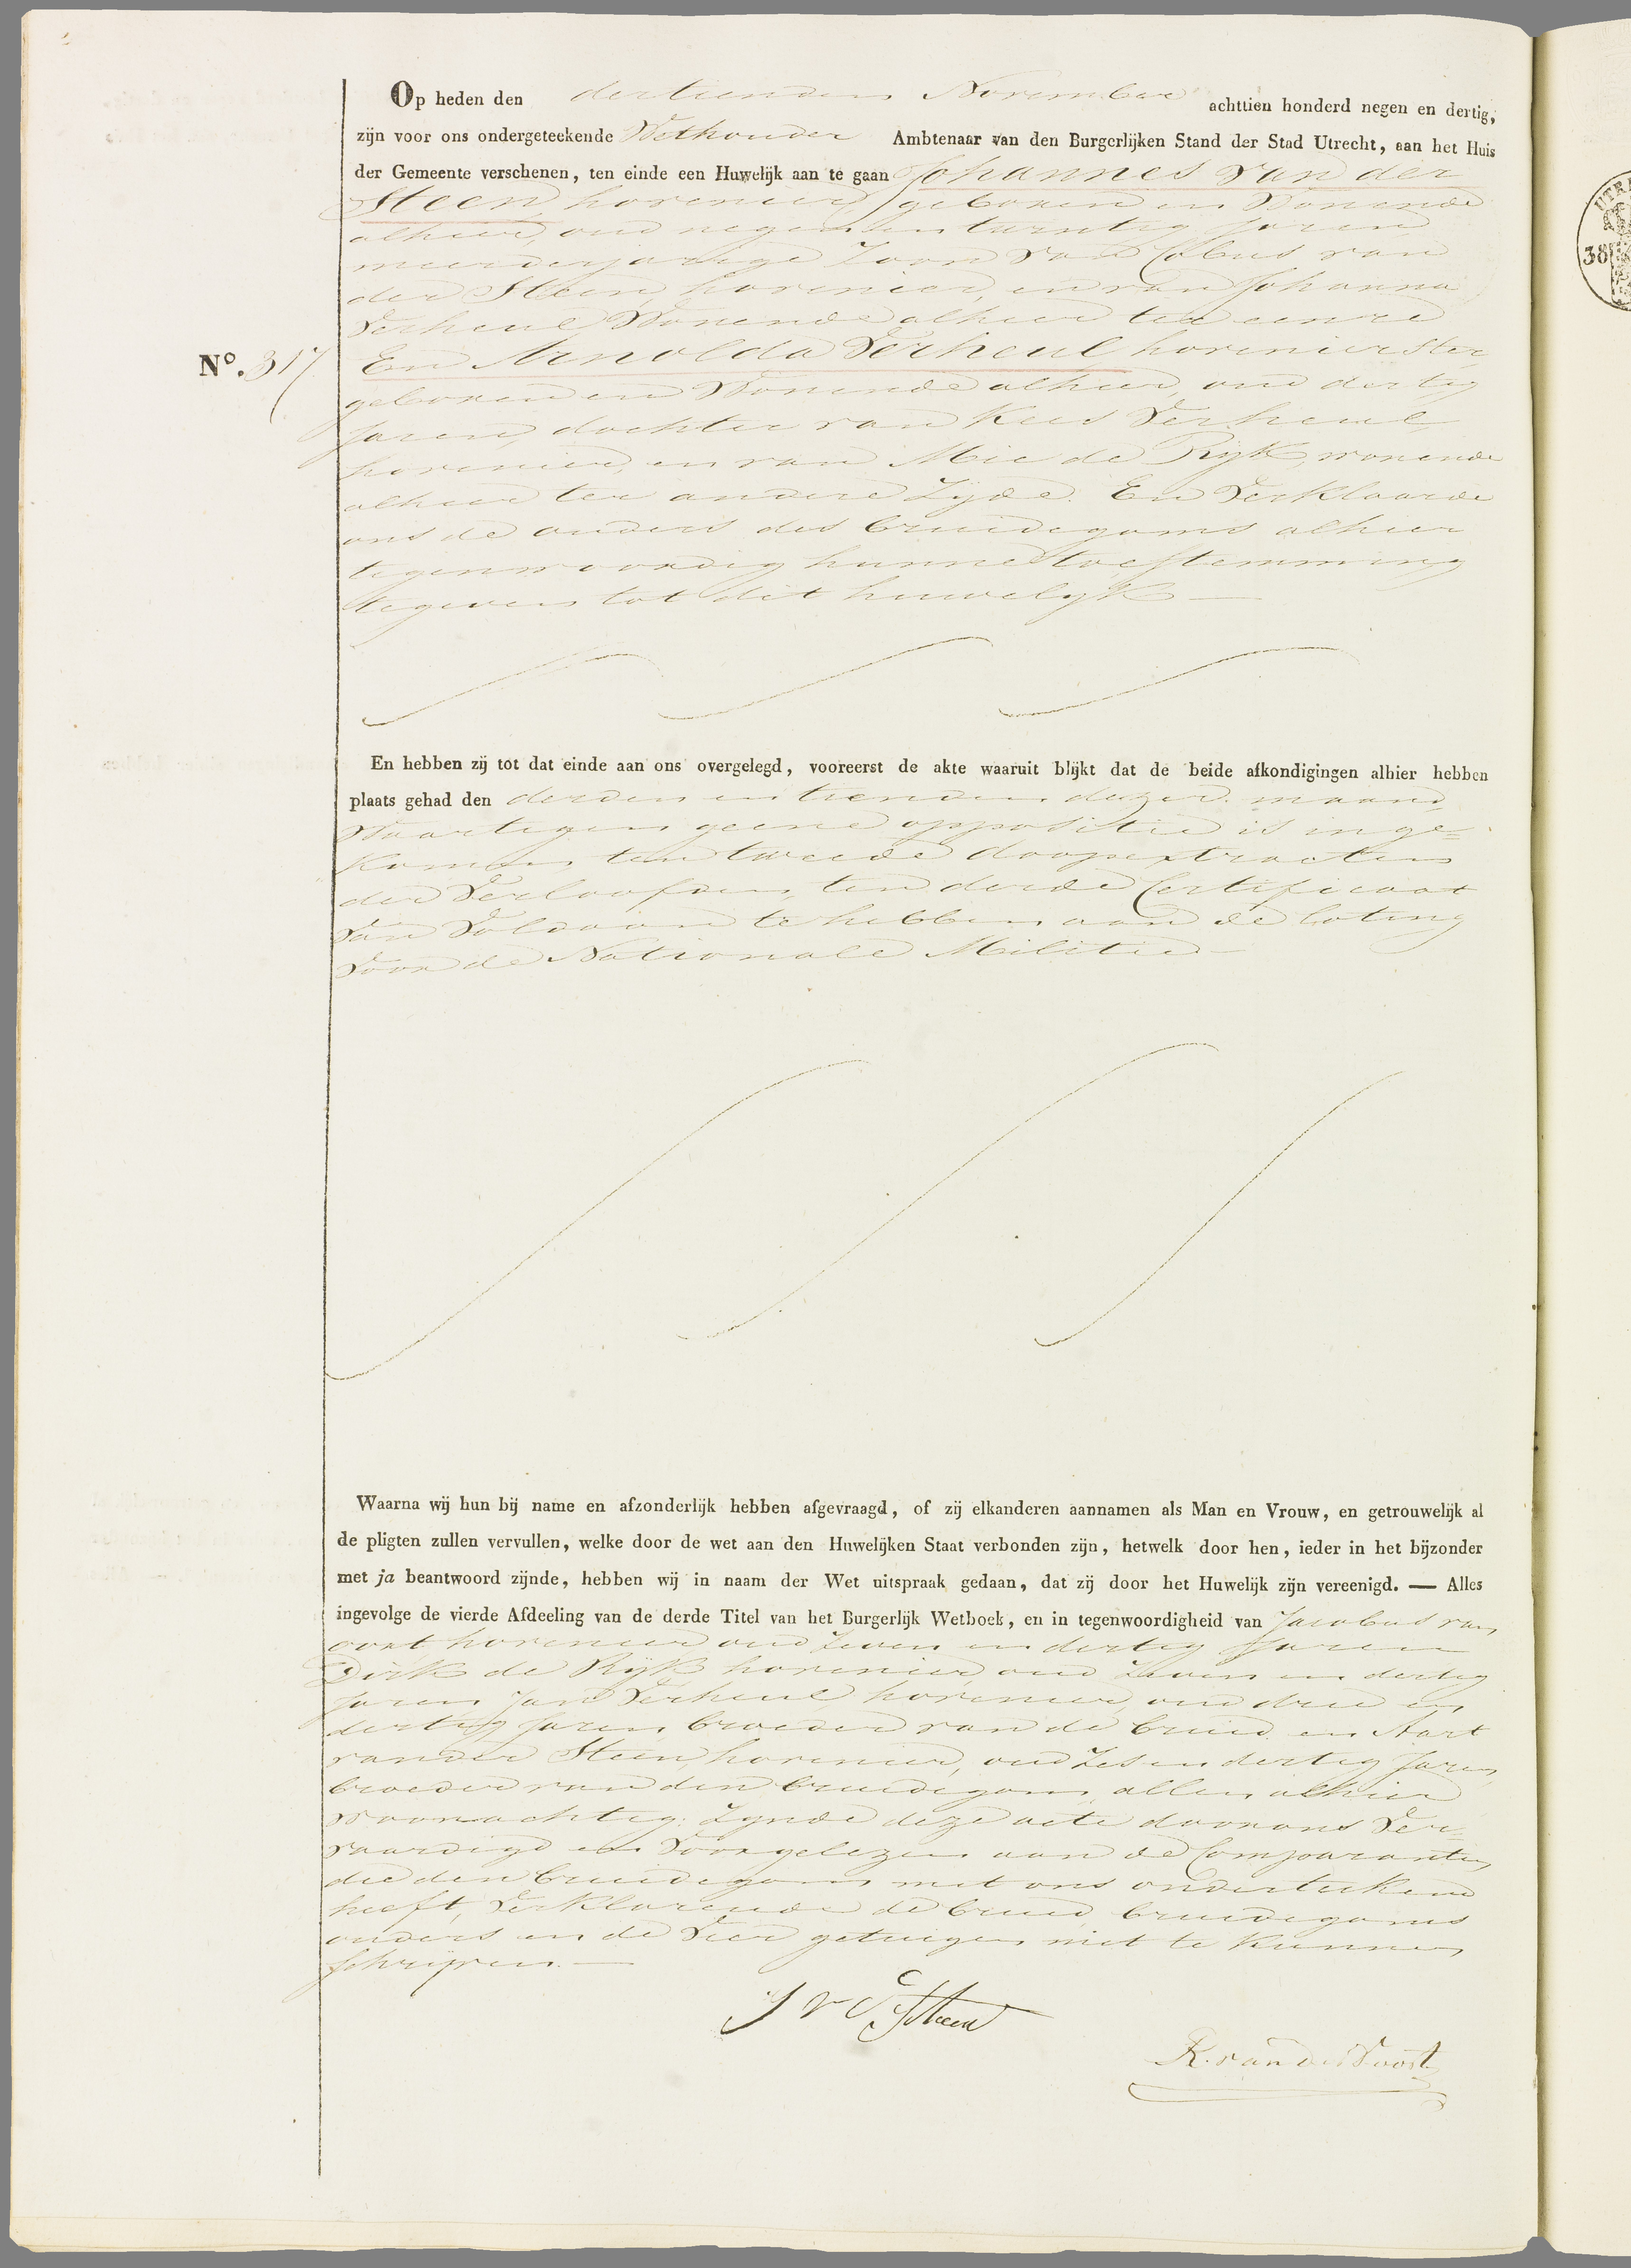 Op heden den dertienden November achttien honderd negen en dertig,
zijn voor ons ondergeteekende Wethouder Ambtenaar van den Burgerlijken Stand der Stad Utrecht, aan het Huis
der Gemeente verschenen, ten einde een Huwelijk aan te gaan Johannes van der
Steen, hovenier, geboren en Wonende
alhier, oud negen en twintig Jaren
meerderjarige Zoon van Cobus van
der Steen, hovenier, en van Johanna
Verheul Wonende alhier ter eenre
No. 317
En Arnolda Verheul, hovenierster,
geboren en Wonende alhier, oud dertig
Jaren, dochter van Kees Verheul,
hovenier, en van Mie de Rijk, wonende
alhier ter andere Zijde. En Verklaarde
ons de ouders des bruidegoms alhier
tegenwoordig hunne toestemming
tegeven tot dit huwelijk —
En hebben zij tot dat einde aan ons overgelegd, vooreerst de akte waaruit blijkt dat de beide afkondigingen alhier hebben
plaats gehad den derden en tienden dezer maand,
Waartegen geene oppositie is inge=
komen, ten tweede doopextracten
der Verloofden, ten derde Certificaat
van Voldaan te hebben aan de loting
voor de Nationale Militie —
Waarna wij hun bij name en afzonderlijk hebben afgevraagd, of zij elkanderen aannamen als Man en Vrouw, en getrouwelijk al
de pligten zullen vervullen, welke door de wet aan den Huwelijken Staat verbonden zijn, hetwelk door hen, ieder in het bijzonder
met ja beantwoord zijnde, hebben wij in naam der Wet uitspraak gedaan, dat zij door het Huwelijk zijn vereenigd. — Alles
ingevolge de vierde Afdeeling van de derde Titel van het Burgerlijk Wetboek, en in tegenwoordigheid van Jacobus van
oort, hovenier oud Zeven en dertig Jaren
Dirk de Rijk hovenier, oud Zeven en dertig
Jaren Jan Verheul, hovenier, oud drie en
dertig Jaren, broeder van de bruid, en Aart
van der Steen, hovenier, oud Zes en dertig Jaren,
broeder van den bruidegom, allen alhier
Woonachtig: Zynde deze acte door ons Ver=
vaardigd en Voorgelezen aan de Comparanten
die den bruidegom met ons ondertekend
heeft, Verklarende de bruid, bruidegoms
ouders en de Vier getuigen niet te kunnen
schrijven. —
J v d Steen
R. van der Voort
UTRE
38